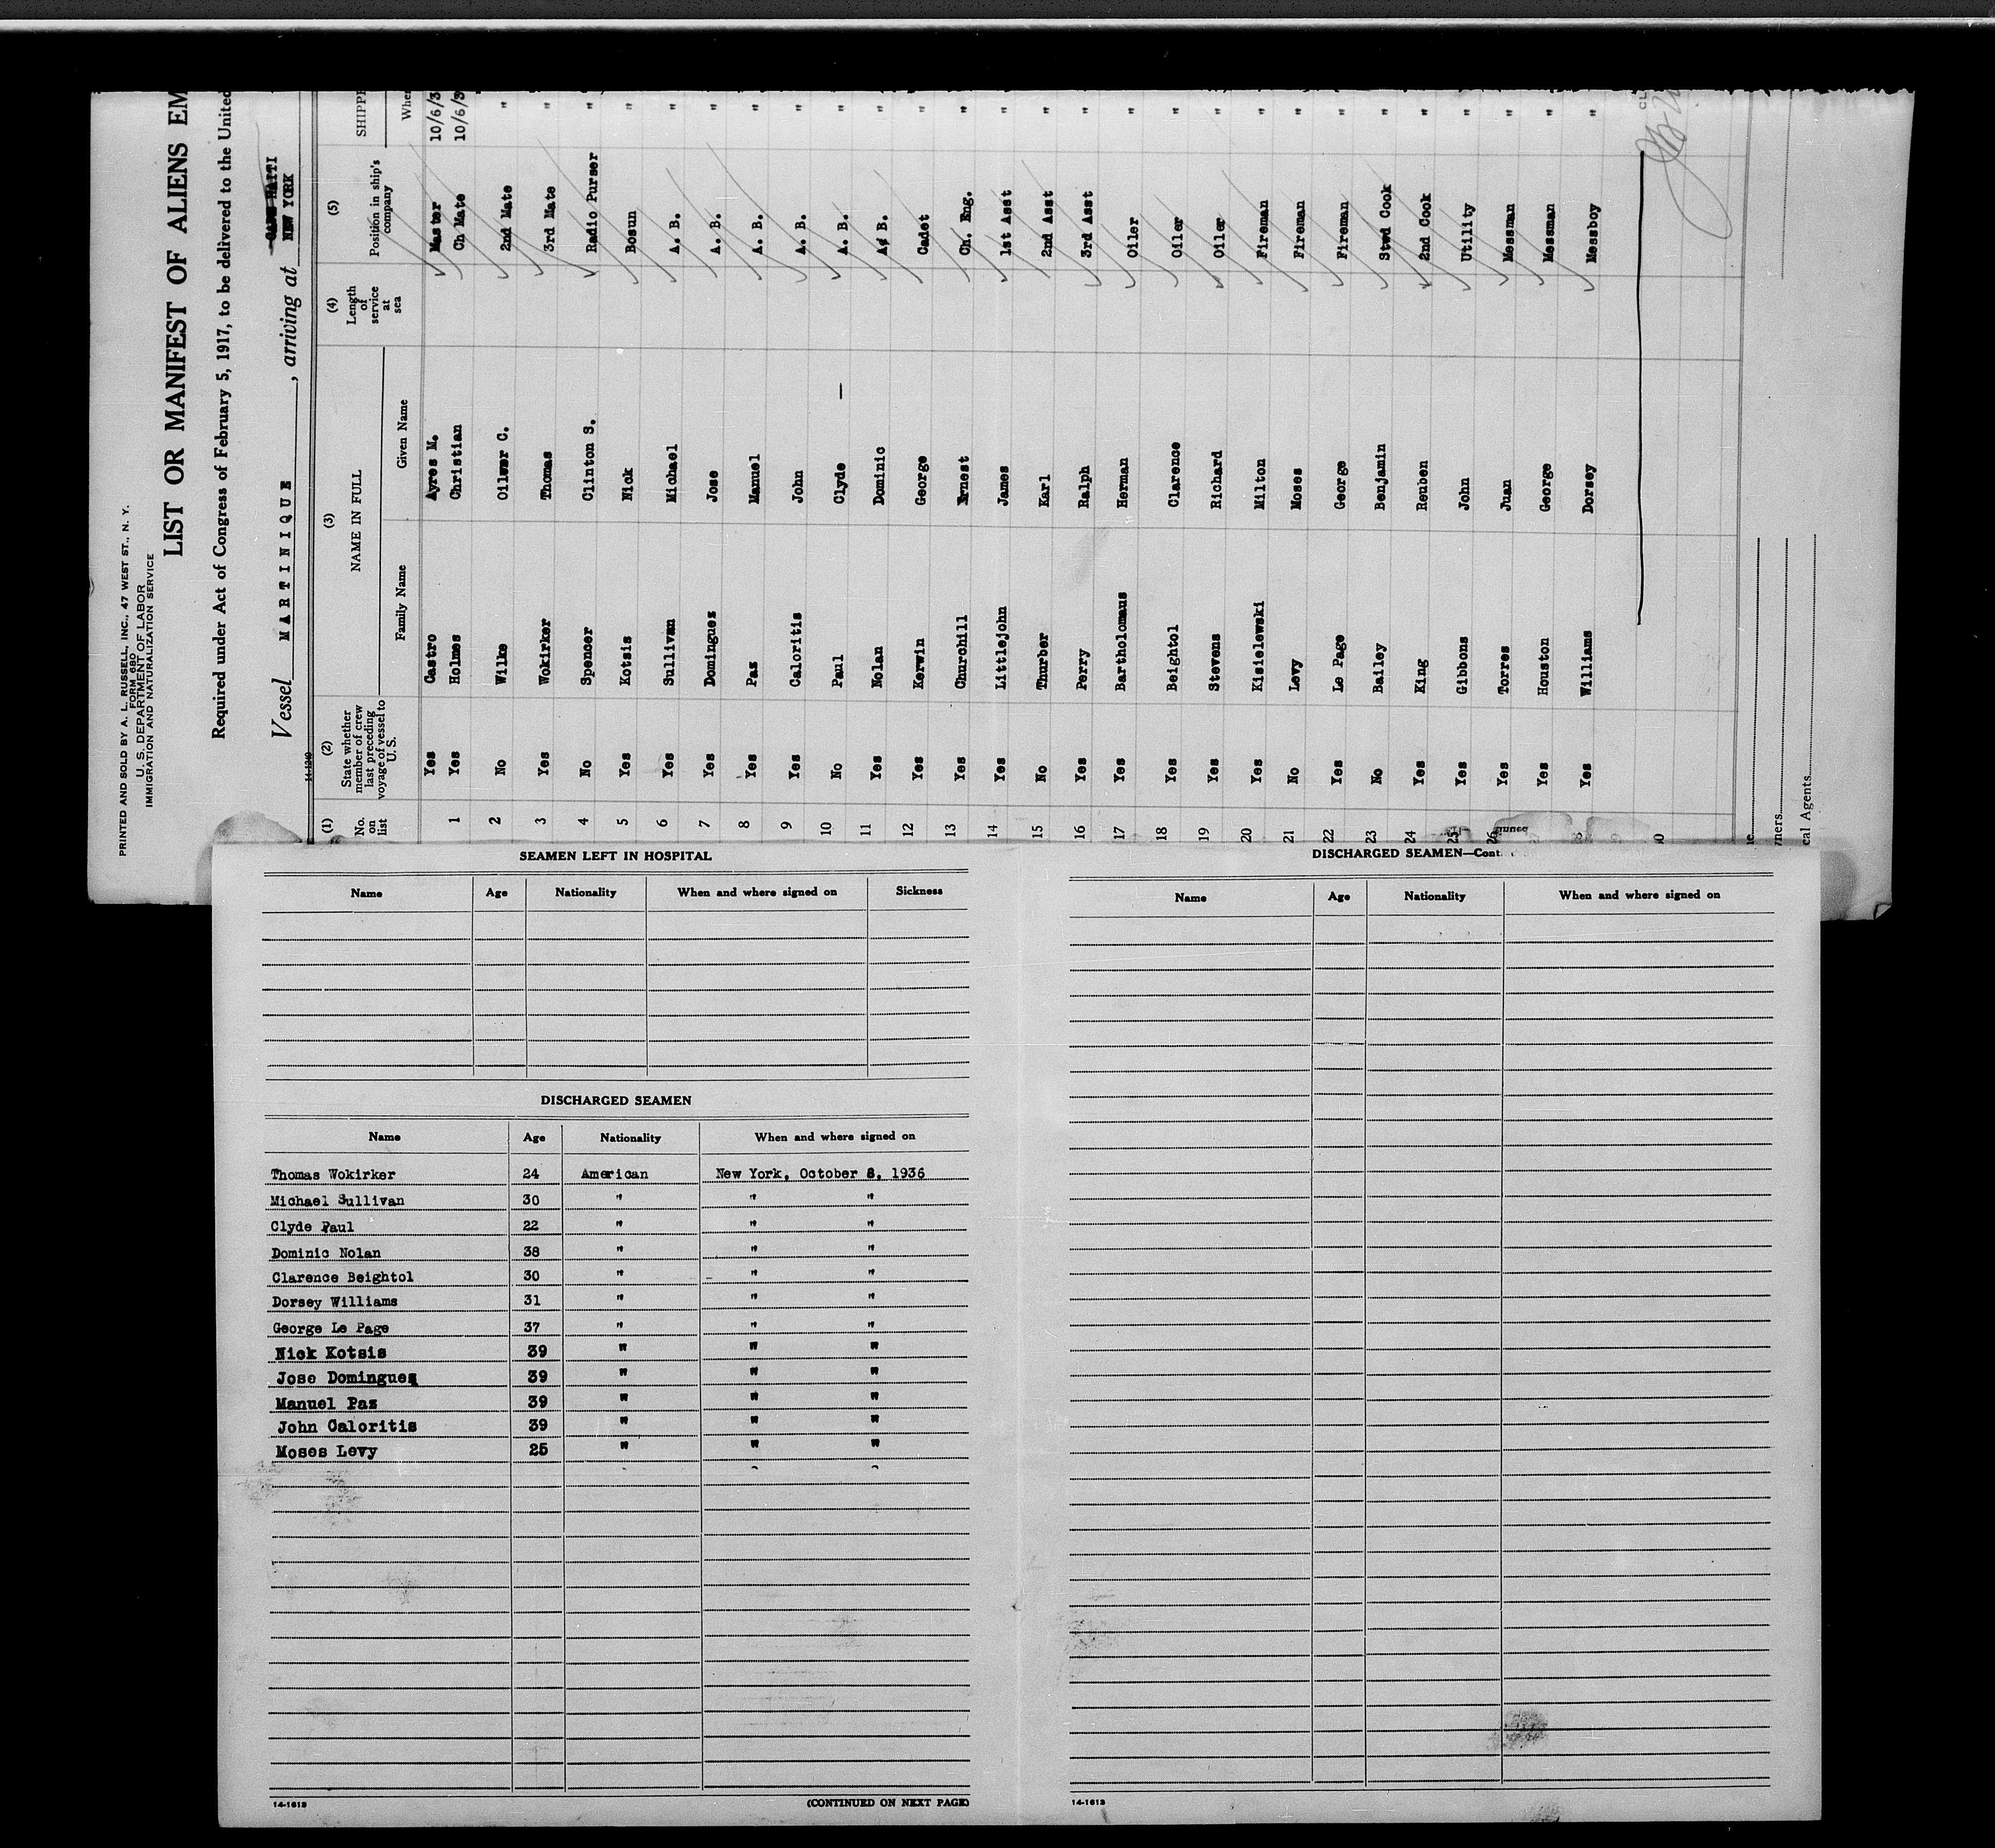 PRINTED AND SOLD BY A. L. RUSSELL, INC., 47 WEST ST., N. Y.
FORM 680
U. S. DEPARTMENT OF LABOR
IMMIGRATION AND NATURALIZATION SERVICE
LIST OR MANIFEST OF ALIENS EM
Required under Act of Congress of February 5, 1917, to be delivered to the United
Vessel MARTINIQUE, arriving at NEW YORK
14-1240
(1) (2) (3) (4) (5)
No. on list State whether member of crew last preceding voyage of vessel to U. S. NAME IN FULL Length of service at sea Position in ship's company SHIPPE
Family Name Given Name When
Yes Castro Ayres M. Master 10/6/3
1 Yes Holmes Christian Ch Mate 10/6/3
2 No Wilke C. 2nd Mate "
3 Yes Wokirker Thomas 3rd Mate "
4 No Spencer Clinton S. Radio Purser "
5 Yes Kotsis Nick Bosun "
6 Yes Sullivan Michael A. B. "
7 Yes Dominguez Jose A. B. "
8 Yes Paz Manuel A. B. "
9 Yes Caloritis John A. B. "
10 No Paul Clyde — A. B. "
11 Yes Nolan Dominic A. B. "
12 Yes Kerwin George Cadet "
13 Yes Churchill Ernest Ch. Eng. "
14 Yes Littlejohn James 1st Asst "
15 No Thurber Karl 2nd Asst "
16 Yes Perry Ralph 3rd Asst "
17 Yes Bartholomaus Herman Oiler "
18 Yes Beightol Clarence Oiler "
19 Yes Stevens Richard Oiler "
20 Yes Kisielewski Milton Fireman "
21 No Levy Moses Fireman "
22 Yes Le Page George Fireman "
23 No Bailey Benjamin Stwd Cook "
24 Yes King Reuben 2nd Cook "
25 Yes Gibbons John Utility "
26 Yes Torres Juan Messman "
Yes Houston George Messman "
Yes Williams Dorsey Messboy "
cal Agents
SEAMEN LEFT IN HOSPITAL
Name Age Nationality When and where signed on Sickness
DISCHARGED SEAMEN
Name Age Nationality When and where signed on
Thomas Wokirker 24 American New York, October 8, 1936
Michael Sullivan 30 " " "
Clyde Paul 22 " " "
Dominic Nolan 38 " " "
Clarence Beightol 30 " " "
Dorsey Williams 31 " " "
George Le Page 37 " " "
Nick Kotsis 39 " " "
Jose Dominguez 39 " " "
Manuel Paz 39 " " "
John Caloritis 39 " " "
Moses Levy 25 " " "
14-1613 (CONTINUED ON NEXT PAGE)
DISCHARGED SEAMEN—Cont.
Name Age Nationality When and where signed on
14-1613